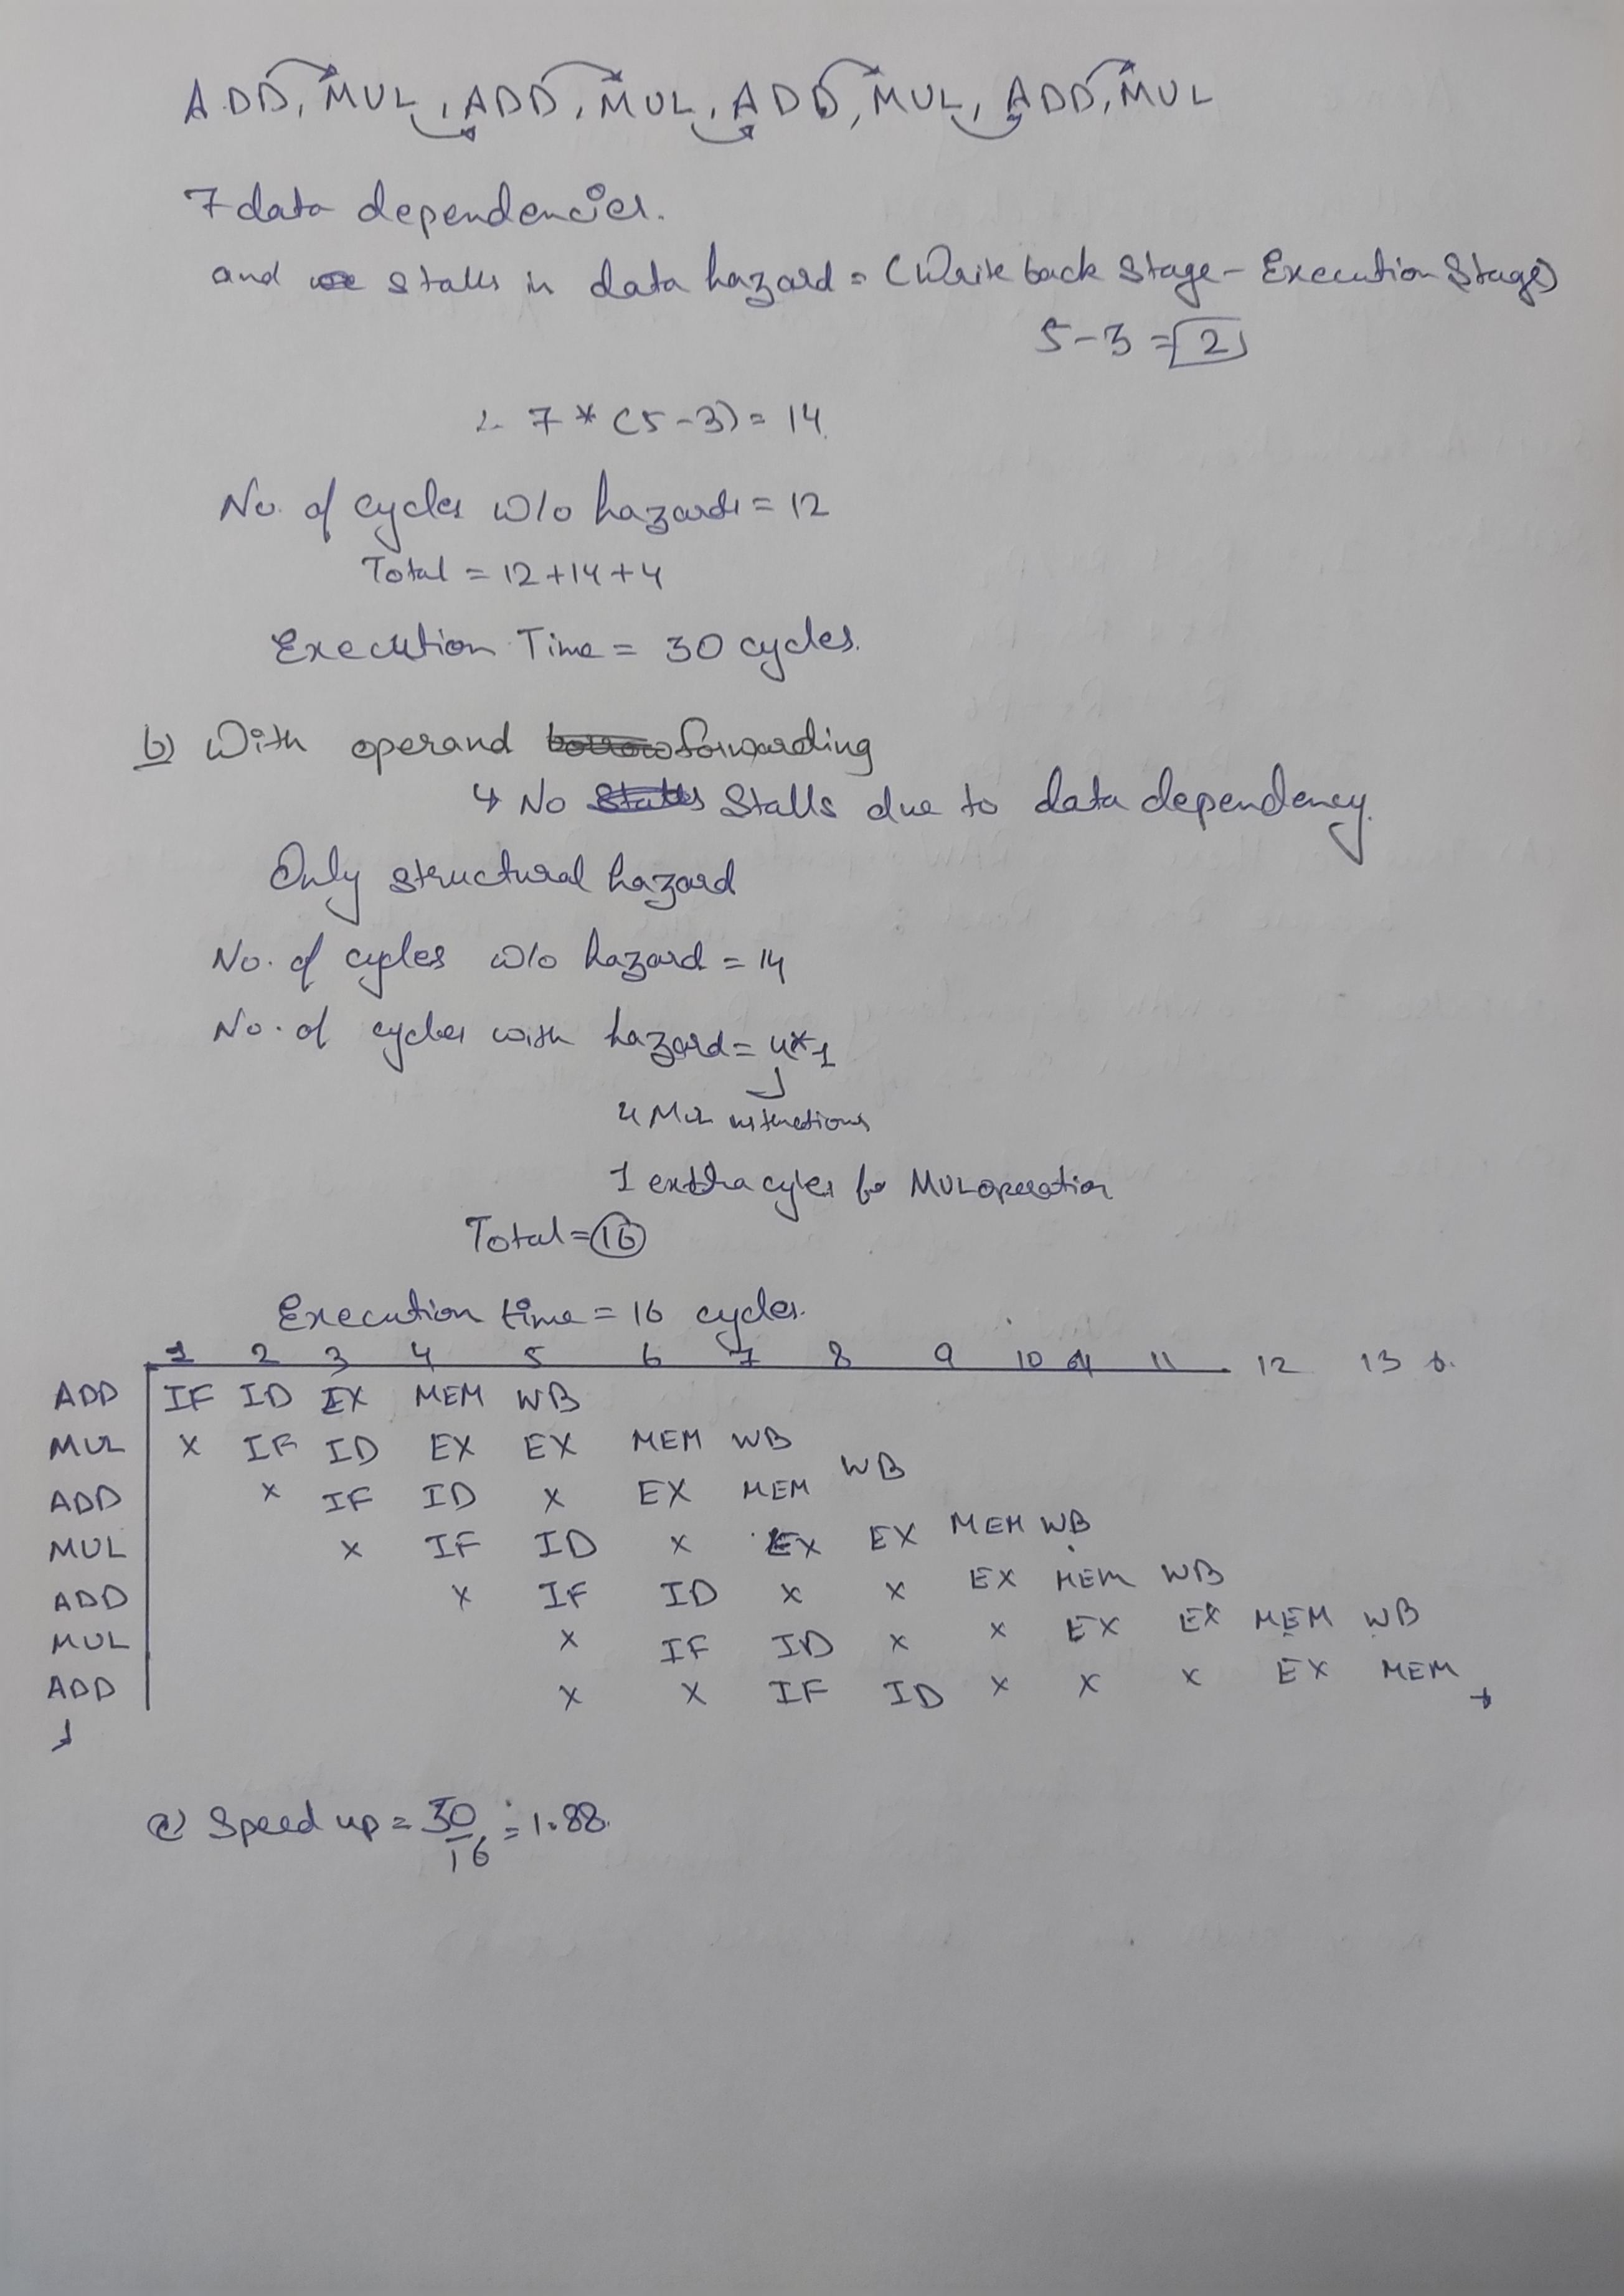 ADD, MUL, ADD, MUL, ADD, MUL, ADD, MUL
7 data dependencies.
and stalls in data hazard = (Write back Stage - Execution Stage)
5-3 = 2
∴ 7 * (5-3) = 14
No. of cycles w/o hazards = 12
Total = 12+14+4
Execution Time = 30 cycles.
b) With operand forwarding
↳ No Stalls due to data dependency.
Only structural hazard
No. of cycles w/o hazard = 14
No. of cycles with hazard = 4*1
4 MUL instructions
1 exthra cyles for MUL operation
Total = 16
Execution time = 16 cycles.
1 2 3 4 5 6 7 8 9 10 11 12 13
ADD IF ID EX MEM WB
MUL X IF ID EX EX MEM WB
ADD X IF ID X EX MEM WB
MUL X IF ID X EX EX MEM WB
ADD X IF ID X X EX MEM WB
MUL X IF ID X X EX EX MEM WB
ADD X X IF ID X X X EX MEM
c) Speed up = 30/16 = 1.88